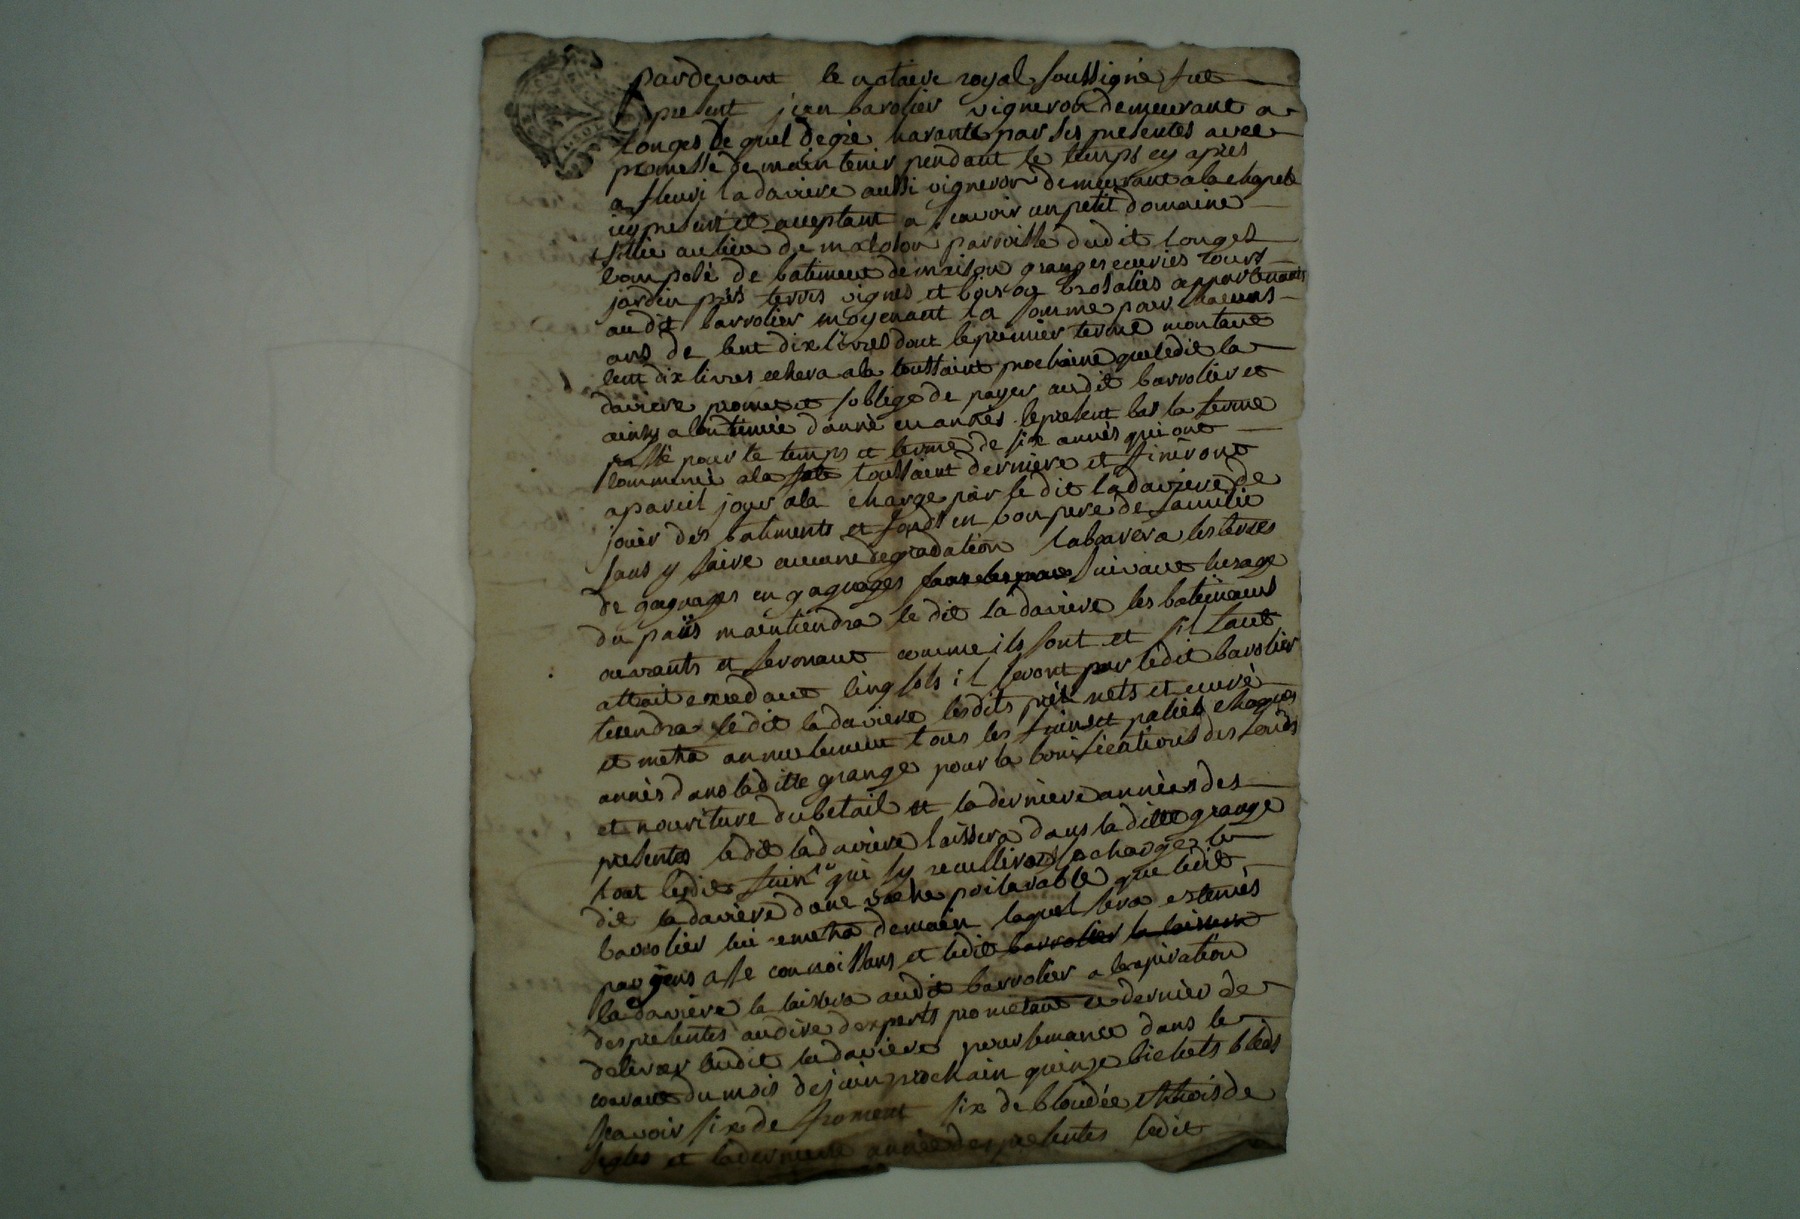 pardevant le notaire royal soussigné fut
present jean barolier vigneron demeurant a
longes le quel de gré par ses presentes avec
promesse de maintenir pendant le temps cy apres
a fleuri ladaviere aussi vigneron demeurant a la chapele
icy present et aceptant a scavoir un petit domaine
sittué au lieu de parroisse dudit longes
composé de batiment de maison granges ecuries cours
jardin prés terres vignes et bois appartenants
audit barrolier moyenant la somme pour chacuns
ans de cent dix livres dont le premier terme montant
cent dix livres echera a la toussaint prochaine que ledit la
daviere promet et soblige de payer audit barrolier et
ainsy a continuée danné en annés le present bas la ferme
passé pour le temps et terme de six annés qui ont
commencé a la toussaint derniere et finiront
a pareil jour a la charge par le dit ladaviere de
jouir des batiments et fonds en bon pere de famille
sans y faire aucune degradation labourera les terres
de gagnages en gagnages suivant lusage
du païs maintiendra le dit ladaviere les batiments
couvants et comme ils sont et sil faut
excedant cinq sols il seront par ledit barolier
tiendra le dit ladaviere lesdits prés nets et curé
et metra annuelement tous les foins et pailes chaques
annés dans laditte grange pour la bonifications des fonds
et nouriture du betail et la derniere années des
presentes ledit ladaviere laissera dans laditte grange
tout lesdit foins qui sy recullira se chargez le
dit ladaviere dune vache que ledit
barrolier lui remetra demain laquel sera estimés
par gens a se connoissans et ledit barrolier la laissera
ladaviere la laissera audit barrolier a lexpiration
des presentes audire dexperts prometant ce dernier de
delivrer audit ladaviere pour semance dans le
courant du mois de juin prochain quinze bichets bleds
scavoir six de froment six de blondée et trois de
segles et la derniere année des presentes ledit